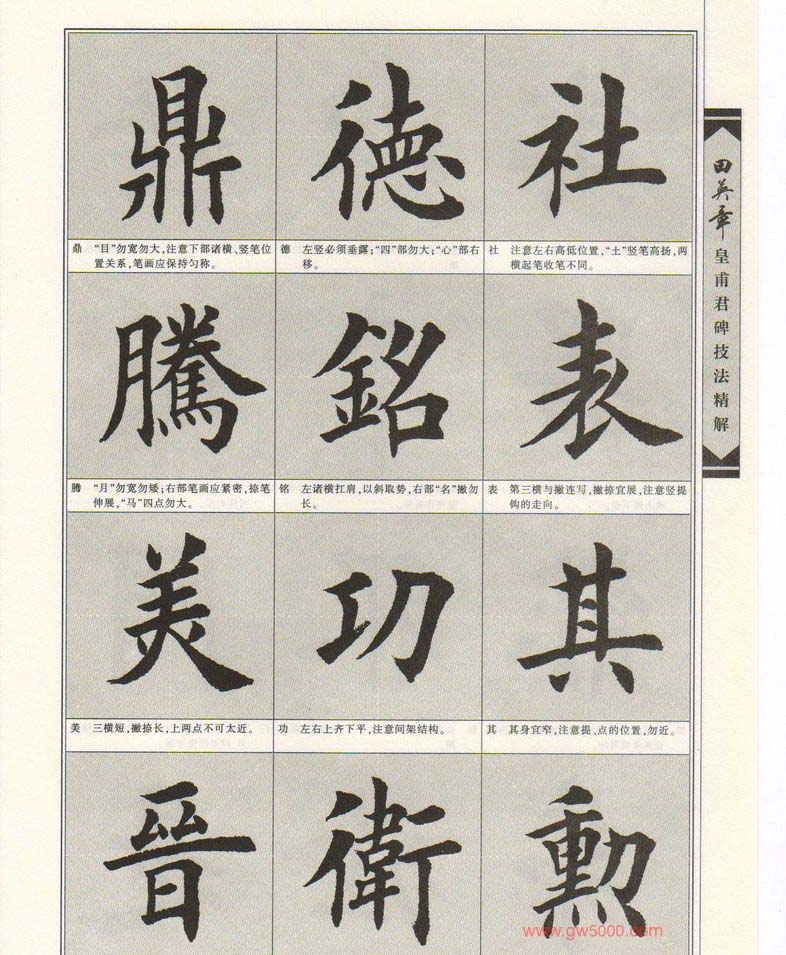 鼎 德 社
鼎 “目”勿宽勿大,注意下部诸横、竖笔位
置关系,笔画应保持匀称。
德 左竖必须垂露;“四”部勿大;“心”部右
移。
社 注意左右高低位置,“土”竖笔高扬,两
横起笔收笔不同。
騰 銘 表
腾 “月”勿宽勿矮;右部笔画应紧密,捺笔
伸展,“马”四点勿大。
铭 左诸横扛肩,以斜取势,右部“名”撇勿
长。
表 第三横与撇连写,撇捺宜展,注意竖提
钩的走向。
美 功 其
美 三横短,撇捺长,上两点不可太近。
功 左右上齐下平,注意间架结构。
其 其身宜窄,注意提、点的位置,勿近。
晉 衛 勲
田英章
皇甫君碑技法精解
www.gw5000.com